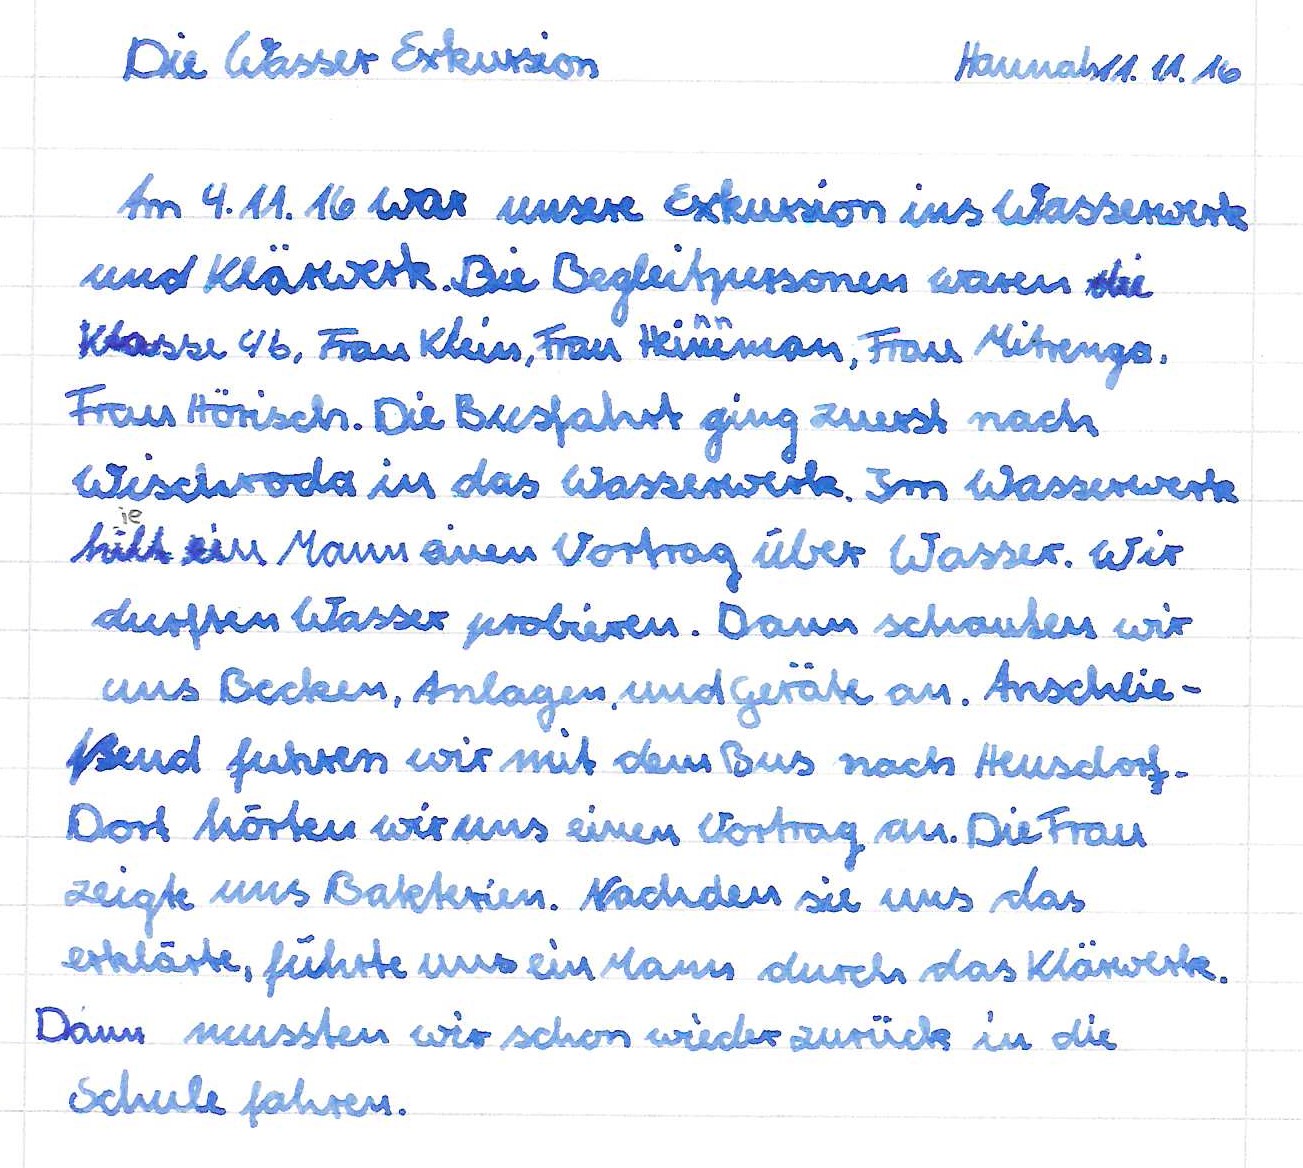 Die Wasser Exkursion Hannah 11.11.16
Am 4.11.16 war unsere Exkursion ins Wasserwerk
und Klärwerk. Die Begleitpersonen waren die
Klasse 4b, Frau Klein, Frau Heinnman, Frau Mitrenga.
Frau Hörisch. Die Busfahrt ging zuerst nach
Wischroda in das Wasserwerk. Im Wasserwerk
hielt ein Mann einen Vortrag über Wasser. Wir
durften Wasser probieren. Dann schauten wir
uns Becken, Anlagen, und Geräte an. Anschlie-
ßend fuhren wir mit dem Bus nach Heusdorf.
Dort hörten wir uns einen Vortrag an. Die Frau
zeigte uns Bakterien. Nachden sie uns das
erklärte, führte uns ein Mann durch das Klärwerk.
Dann mussten wir schon wieder zurück in die
Schule fahren.